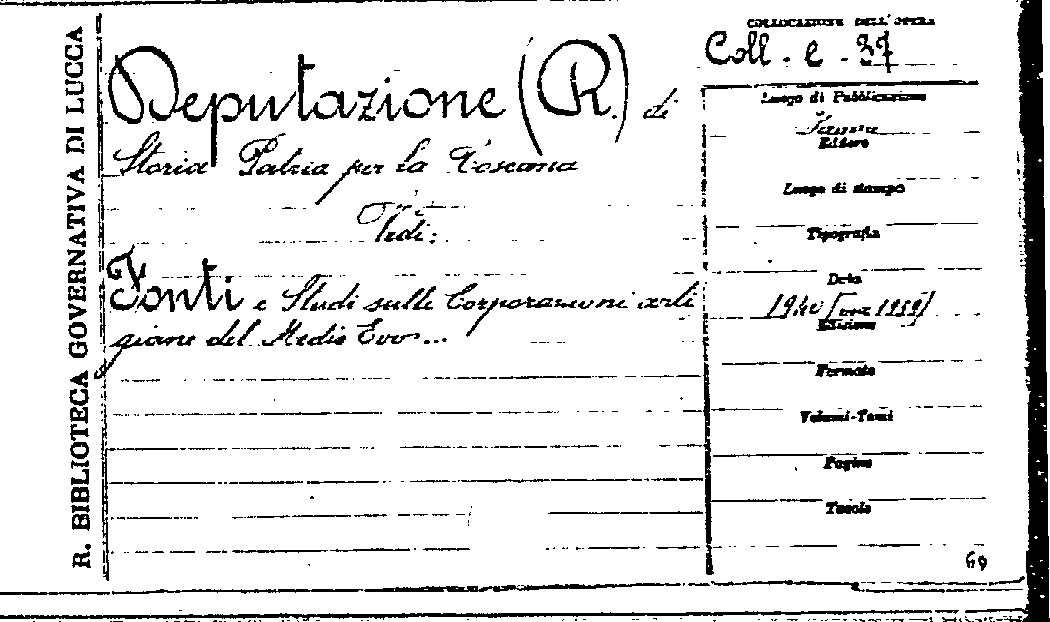 R. BIBLIOTECA GOVERNATIVA DI LUCCA
COLLOCAZIONE DELL'OPERA
Coll. e. 37
Deputazione (R.) di
Storia Patria per la Toscana
Vedi:
Fonti e Studi sulle Corporazioni arti
giane del Medio Evo...
Luogo di Pubblicazione
Editore
Luogo di stampa
Tipografia
Data
1940
Edizione
Formato
Volumi-Tomi
Pagine
Tavole